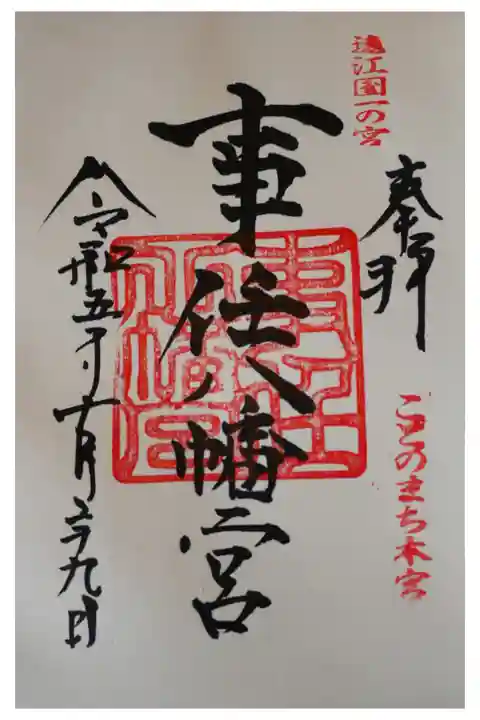 遠江国一の宮
奉拝
ことのまち本宮
事任八幡宮
事任八幡宮
令和五年十月二十九日